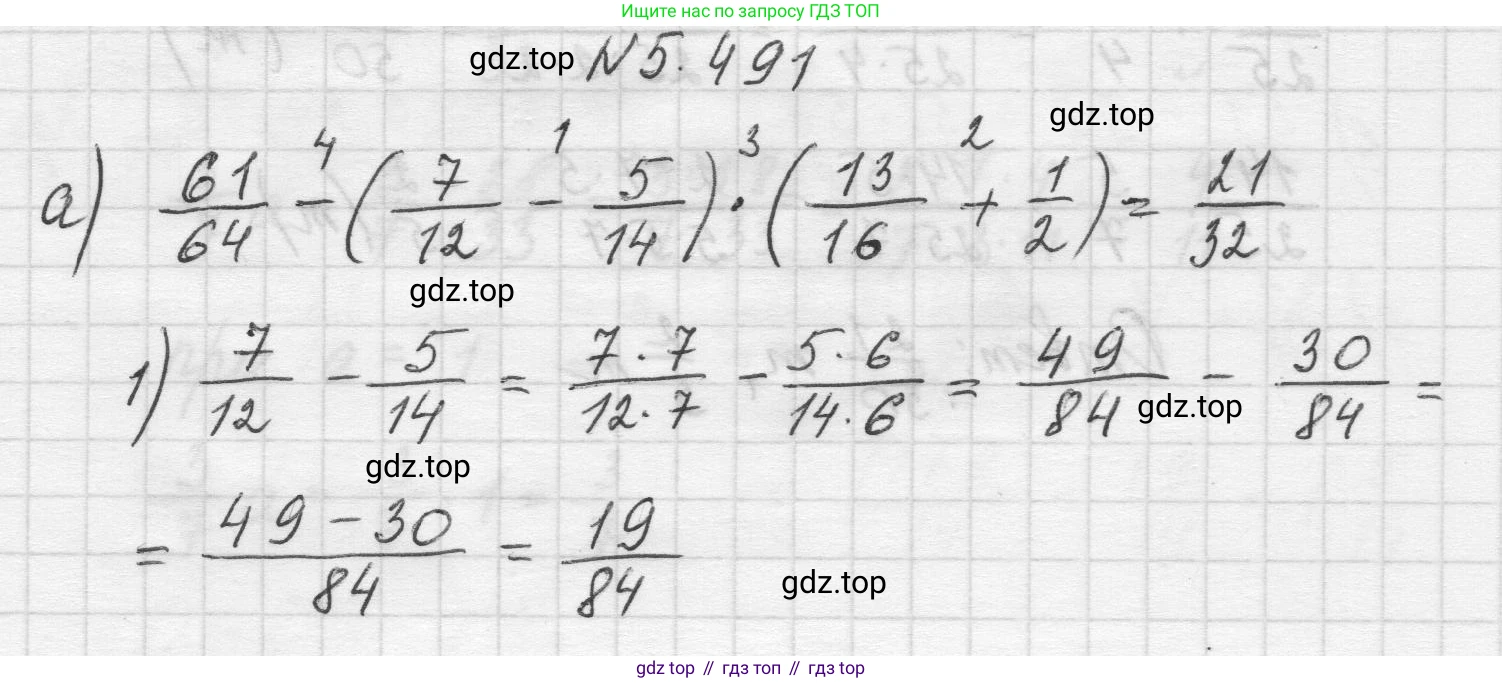 Ищите нас по запросу ГДЗ ТОП
gdz.top №5.491
gdz.top
а) 61/64 - (7/12 - 5/14) · (13/16 + 1/2) = 21/32
4 1 3 2
gdz.top
1) 7/12 - 5/14 = 7·7/12·7 - 5·6/14·6 = 49/84 - 30/84 =
gdz.top
gdz.top
= 49-30/84 = 19/84
gdz.top
gdz top // гдз топ // гдз top